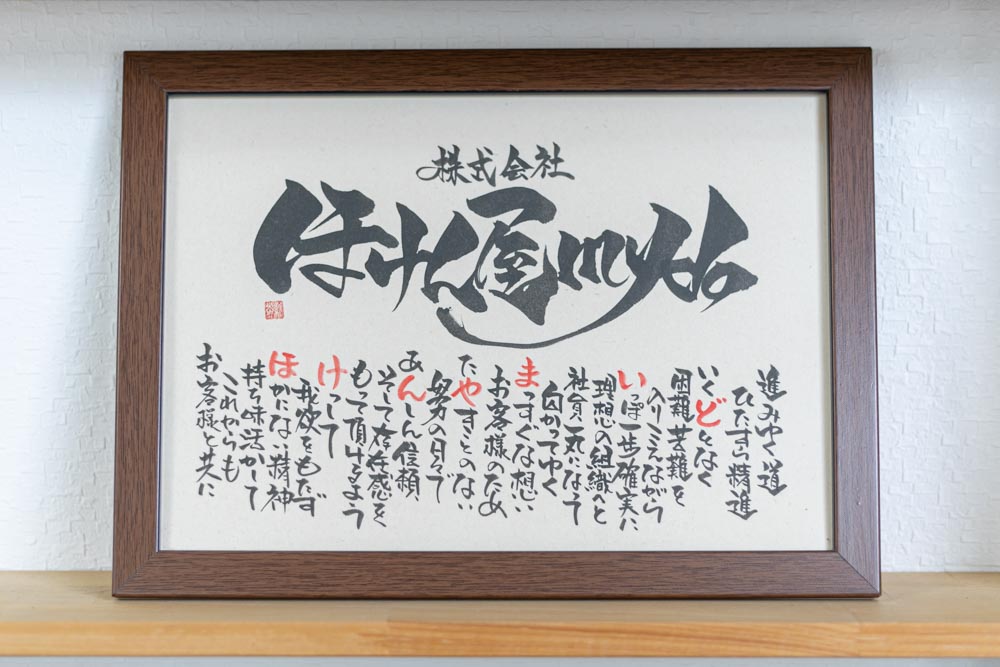 株式会社
ほけん屋mydo
進みゆく道
ひたすら精進
いくどとなく
困難苦難を
のりこえながら
いっぽ一歩確実に
理想の組織へと
社員一丸になって
向かってゆく
まっすぐな想い
お客様のため
たやすことのない
努力の日々で
あんしん信頼
そして存在感を
もって頂けるよう
けっして
我欲をもたず
ほかにない精神
持ち味活かして
これからも
お客様と共に